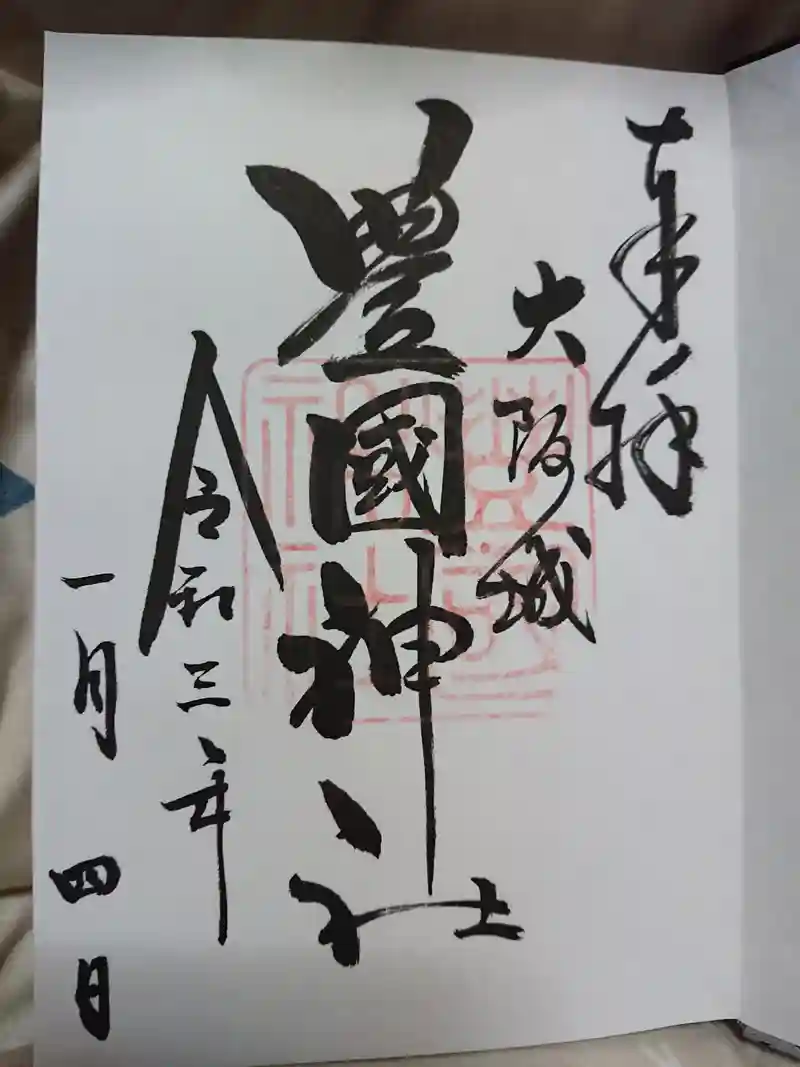 奉拝
大阪城
豐國神社
令和三年
一月四日